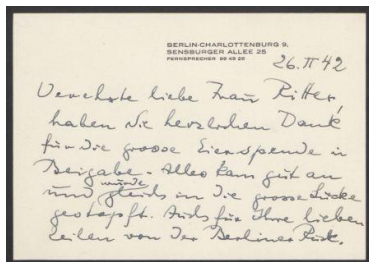 BERLIN-CHARLOTTENBURG 9,
SENSBURGER ALLEE 25
FERNSPRECHER 99 49 28
26. II 42
Verehrte liebe Frau Ritter!
haben Sie herzlichen Dank
für die grosse Eierspende in
Beigabe. Alles kam gut an
wurde
und gleich in die grosse Lücke
gestopft. Auch für Ihre lieben
Zeilen von der Berliner